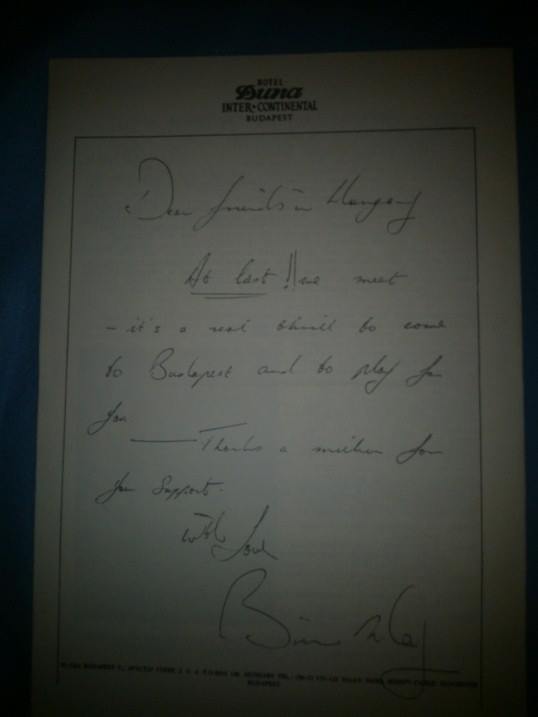 HOTEL
Duna
INTER•CONTINENTAL
BUDAPEST
Dear friends in Hungary
At last!! we meet
- it's a real thrill to come
to Budapest and to play for
you
— Thanks a million for
your support.
with Love
Brian May
BUDAPEST